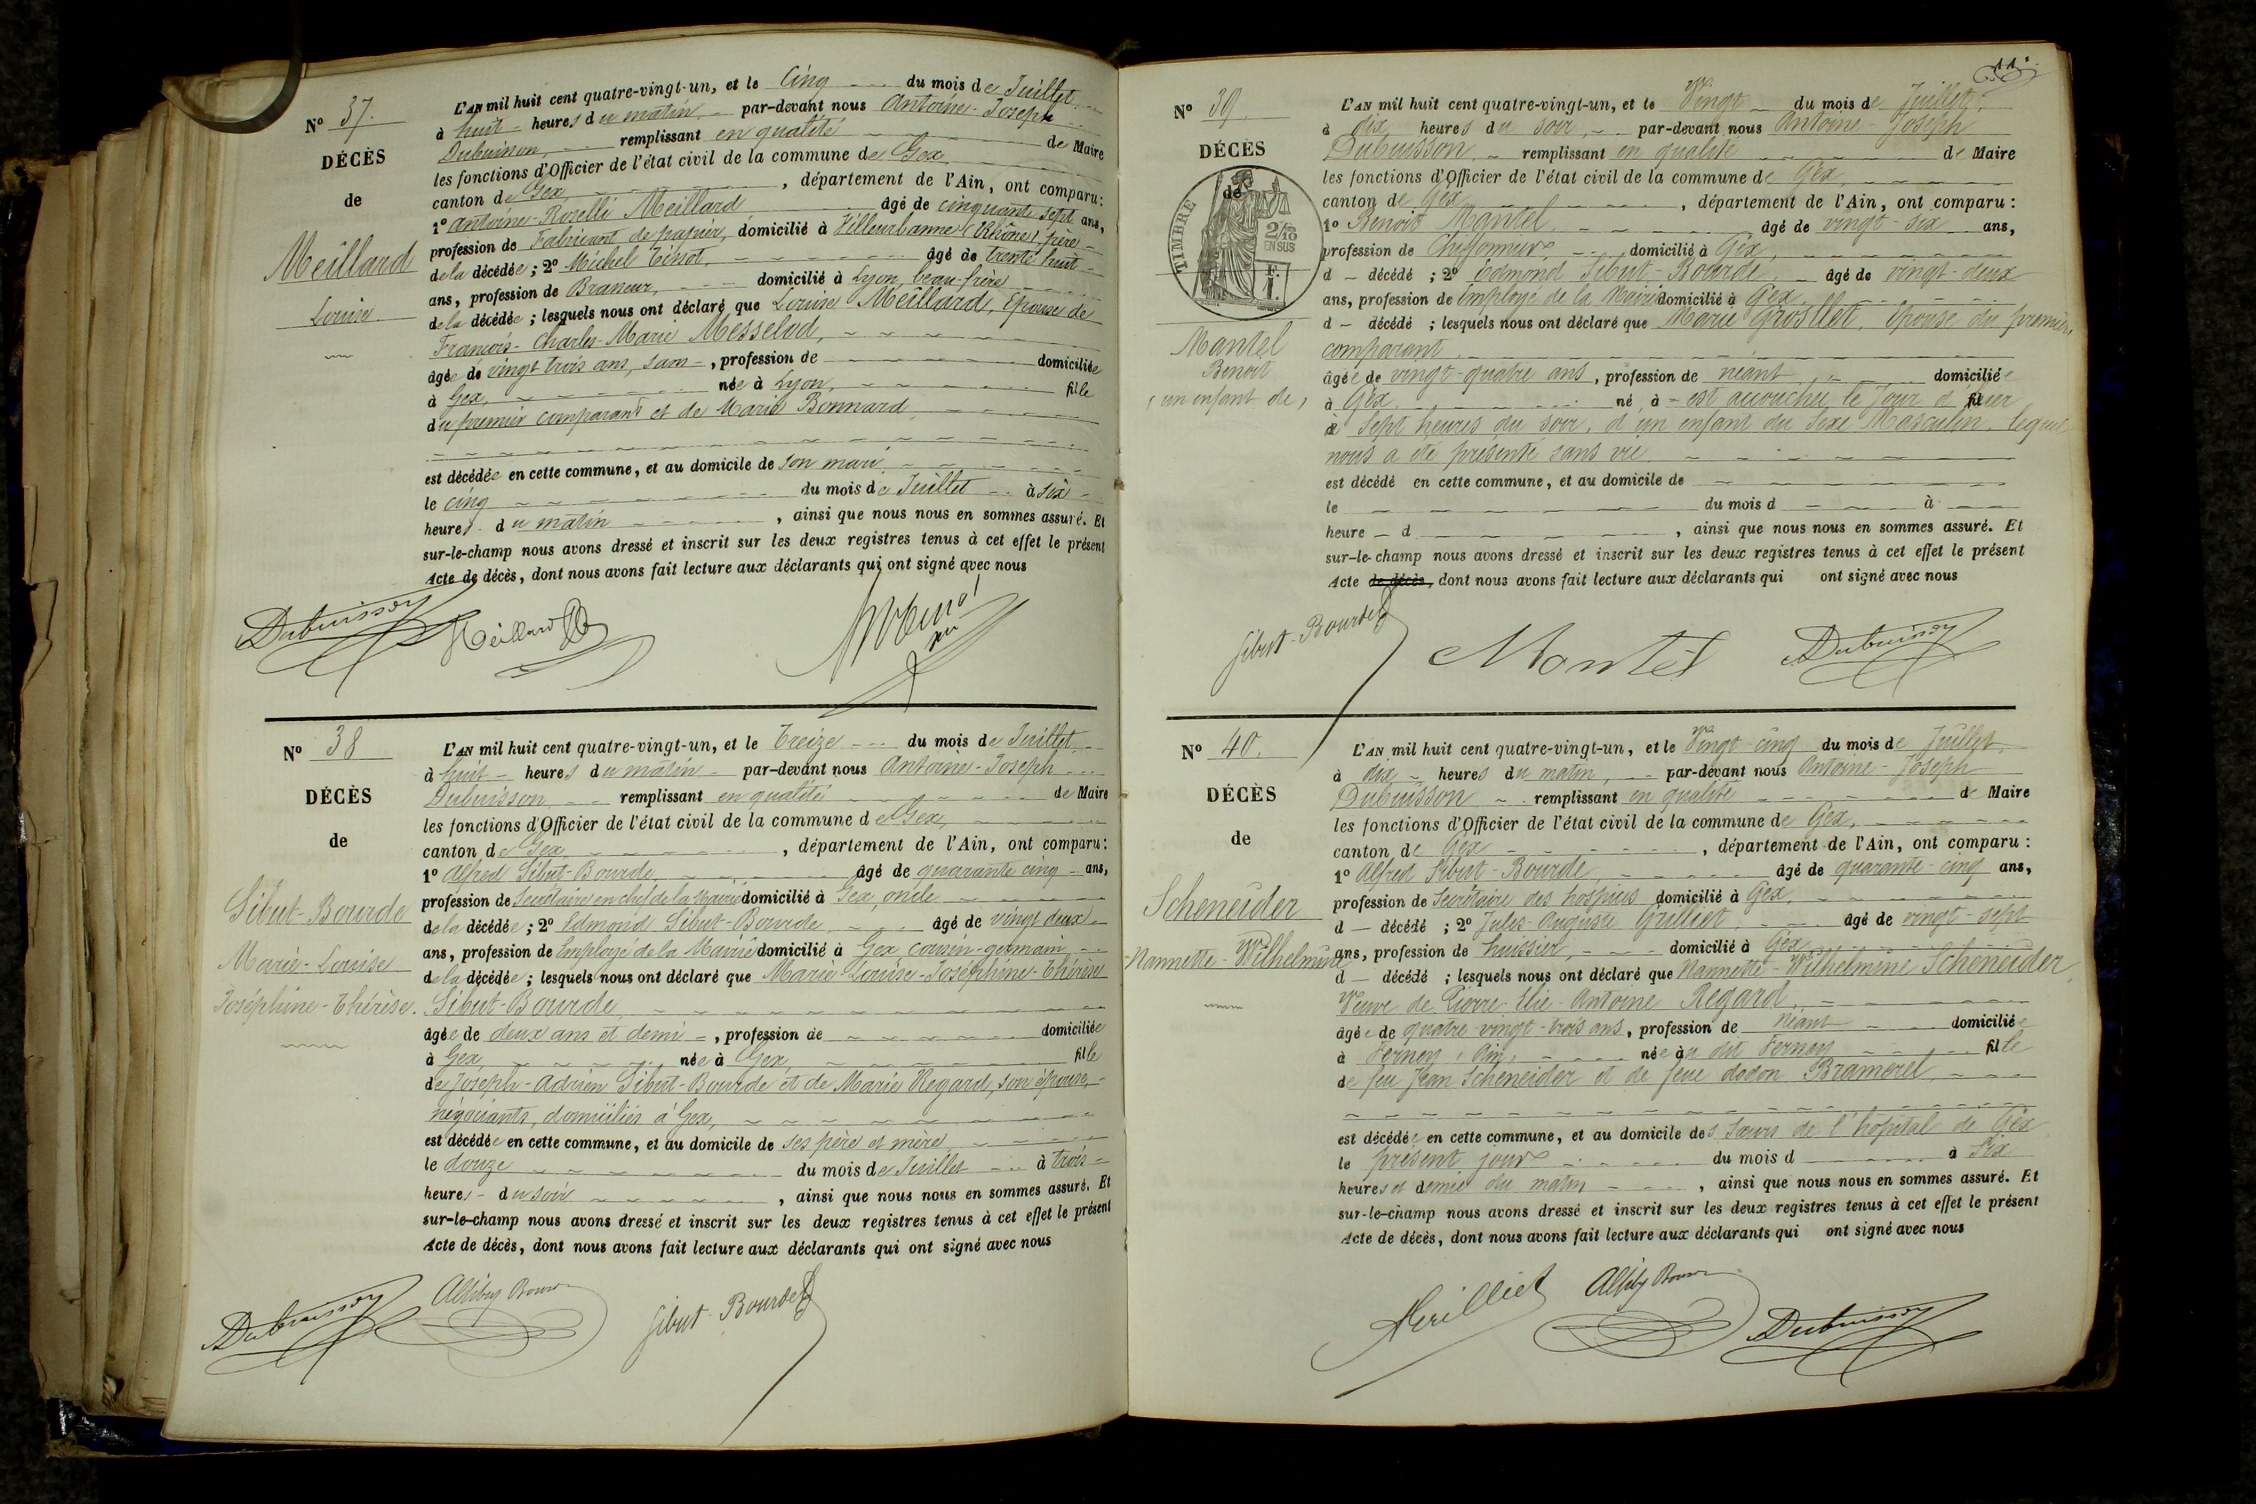 N° 37.
DÉCÈS
de
Meillard
Louise
L'AN mil huit cent quatre-vingt-un, et le Cinq du mois de Juillet
à huit heures du matin, par-devant nous Antoine-Joseph
Dubuisson, remplissant en qualité de Maire
les fonctions d'Officier de l'état civil de la commune de Gex,
canton de Gex, département de l'Ain, ont comparu :
1° Antoine-Roselli Meillard âgé de cinquante sept ans,
profession de Fabricant de papier, domicilié à Villeurbanne (Rhône), père
de la décédée ; 2° Michel Tissot, âgé de trente huit
ans, profession de domicilié à Lyon, beau-frère
de la décédée ; lesquels nous ont déclaré que Louise Meillard, épouse de
François-Charles-Marie Messelod,
âgée de vingt trois ans, sans, profession de domiciliée
à Gex, née à Lyon, fille
du premier comparant et de Marie Bonnard
est décédée en cette commune, et au domicile de son mari
le cinq du mois de Juillet à six
heures du matin, ainsi que nous nous en sommes assuré. Et
sur-le-champ nous avons dressé et inscrit sur les deux registres tenus à cet effet le présent
Acte de décès, dont nous avons fait lecture aux déclarants qui ont signé avec nous
Dubuisson Meillard
N° 38
DÉCÈS
de
Sibut-Bourde
Marie-Louise
Joséphine-Thérèse.
L'AN mil huit cent quatre-vingt-un, et le Treize du mois de Juillet
à huit heures du matin par-devant nous Antoine-Joseph
Dubuisson remplissant en qualité de Maire
les fonctions d'Officier de l'état civil de la commune de Gex,
canton de Gex, département de l'Ain, ont comparu :
1° Alfred Sibut-Bourde, âgé de quarante cinq ans,
profession de Secrétaire en chef de la Mairie domicilié à Gex, oncle
de la décédée ; 2° Edmond Sibut-Bourde, âgé de vingt deux
ans, profession de Employé de la Mairie domicilié à Gex cousin-germain
de la décédée ; lesquels nous ont déclaré que Marie-Louise-Joséphine-Thérèse
Sibut-Bourde,
âgée de deux ans et demi, profession de domiciliée
à Gex née à Gex, fille
de Joseph-Adrien Sibut-Bourde et de Marie Regard, son épouse,
négociants, domiciliés à Gex,
est décédée en cette commune, et au domicile de ses père et mère
le douze du mois de Juillet à trois
heures du soir, ainsi que nous nous en sommes assuré. Et
sur-le-champ nous avons dressé et inscrit sur les deux registres tenus à cet effet le présent
Acte de décès, dont nous avons fait lecture aux déclarants qui ont signé avec nous
Dubuisson Sibut-Bourde
11
N° 39.
DÉCÈS
de
TIMBRE
2/10
EN SUS
Mantel
Benoit
(un enfant de)
L'AN mil huit cent quatre-vingt-un, et le Vingt du mois de Juillet,
à dix heures du soir, par-devant nous Antoine-Joseph
Dubuisson, remplissant en qualité de Maire
les fonctions d'Officier de l'état civil de la commune de Gex,
canton de Gex, département de l'Ain, ont comparu :
1° Benoit Mantel, âgé de vingt-six ans,
profession de Chiffonnier, domicilié à Gex,
d décédé ; 2° Edmond Sibut-Bourde, âgé de vingt-deux
ans, profession de Employé de la Mairie domicilié à Gex,
d décédé ; lesquels nous ont déclaré que Marie Grosllet, épouse du premier
comparant
âgée de vingt-quatre ans, profession de néant domiciliée
à Gex, né à est accouchée le Jour d'hier
à Sept heures du soir, d'un enfant du Sexe Masculin, lequel
nous a été présenté sans vie
est décédé en cette commune, et au domicile de
le du mois d à
heure d, ainsi que nous nous en sommes assuré. Et
sur-le-champ nous avons dressé et inscrit sur les deux registres tenus à cet effet le présent
Acte de décès, dont nous avons fait lecture aux déclarants qui ont signé avec nous
Sibut-Bourde Montèl Dubuisson
N° 40.
DÉCÈS
de
Scheneider
Nannette-Wilhelmine
L'AN mil huit cent quatre-vingt-un, et le Vingt-cinq du mois de Juillet,
à dix heures du matin, par-devant nous Antoine-Joseph
Dubuisson remplissant en qualité de Maire
les fonctions d'Officier de l'état civil de la commune de Gex,
canton de Gex, département de l'Ain, ont comparu :
1° Alfred Sibut-Bourde, âgé de quarante-cinq ans,
profession de Secrétaire des hospices domicilié à Gex,
d décédé ; 2° Jules-Auguste Grilliet, âgé de vingt-sept
ans, profession de huissier, domicilié à Gex
d décédé ; lesquels nous ont déclaré que Nannette-Wilhelmine Scheneider,
Veuve de Pierre-Elie-Antoine Regard,
âgée de quatre-vingt-trois ans, profession de néant domiciliée
à Ferney (Ain), née à u dit Ferney fille
de feu Jean Scheneider et de feue dodon Bramerel
est décédée en cette commune, et au domicile des Sœurs de l'hôpital de Gex
le présent jour du mois d à Six
heures et demie du matin, ainsi que nous nous en sommes assuré. Et
sur-le-champ nous avons dressé et inscrit sur les deux registres tenus à cet effet le présent
Acte de décès, dont nous avons fait lecture aux déclarants qui ont signé avec nous
Dubuisson